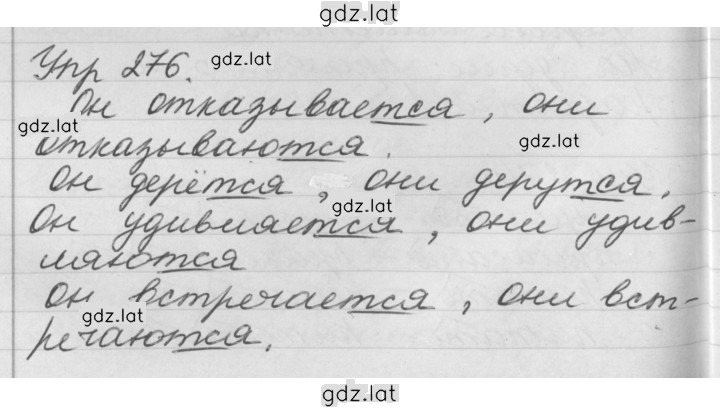 gdz.lat
Упр 276. gdz.lat
Он отказывается, они
gdz.lat
отказываются. gdz.lat
он дерётся, они дерутся.
gdz.lat
Он удивляется, они удив-
ляются
он встречается, они вст-
gdz.lat
речаются.
gdz.lat